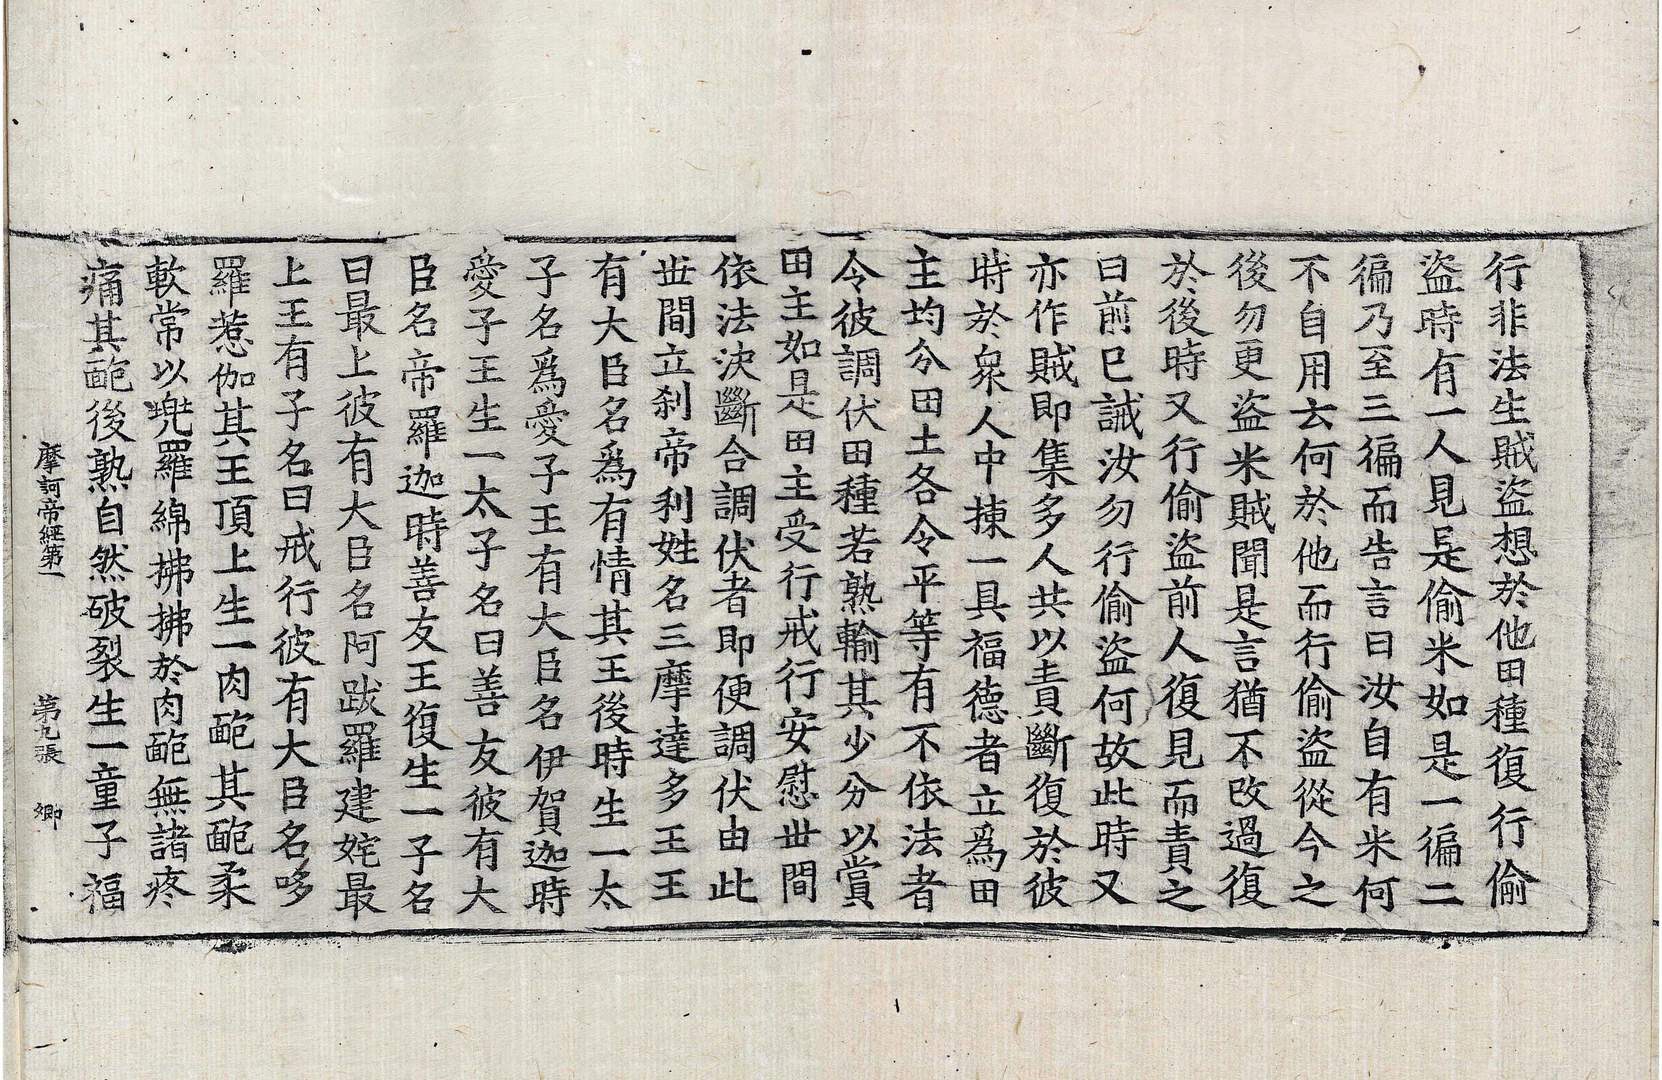 行非法生賊盜想於他田種復行偷
盜時有一人見是偷米如是一徧二
徧乃至三徧而告言曰汝自有米何
不自用去何於他而行偷盜從今之
後勿更盜米賊聞是言猶不改過復
於後時又行偷盜前人復見而責之
曰前已誡汝勿行偷盜何故此時又
亦作賊即集多人共以責斷復於彼
時於衆人中揀一具福德者立爲田
主均分田土各令平等有不依法者
令彼調伏田種若熟輸其少分以賞
田主如是田主受行戒行安慰世間
依法決斷合調伏者即便調伏由此
世間立刹帝利姓名三摩達多王王
有大臣名爲有情其王後時生一太
子名爲愛子王有大臣名伊賀迦時
愛子王生一太子名曰善友彼有大
臣名帝羅迦時善友王復生一子名
曰最上彼有大臣名阿跋羅建姹最
上王有子名曰戒行彼有大臣名哆
羅惹伽其王頂上生一肉皰其皰柔
軟常以兜羅綿拂拂於肉皰無諸疼
痛其皰後熟自然破裂生一童子福
摩訶帝經第一 第九張 卿